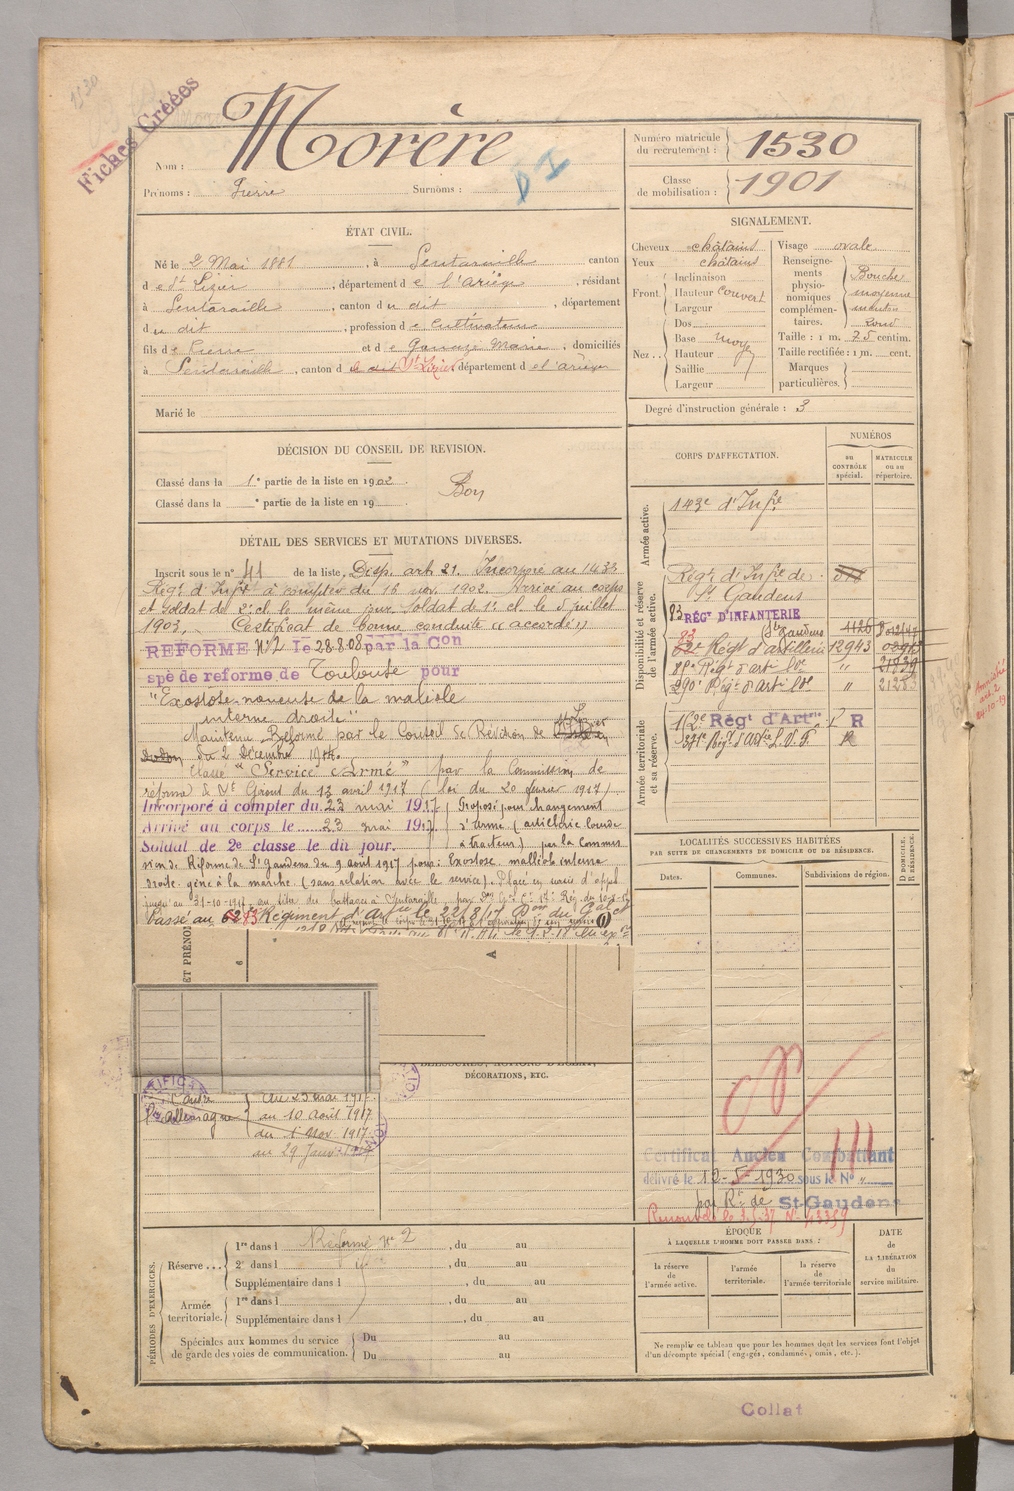 1530
Fiches Créées
Nom : Morère
Prénoms : Pierre Surnoms :
D I
Numéro matricule du recrutement : 1530
Classe de mobilisation : 1901
ÉTAT CIVIL.
Né le 2 Mai 1881, à Sentaraille canton
d e St Lizier, département d e l'Ariège, résidant
à Sentaraille, canton d u dit, département
d u dit, profession d e Cultivateur
fils d e Pierre et d e Marie, domiciliés
à Sentaraille, canton d St Lizier département d e l'ariège
Marié le
SIGNALEMENT.
Cheveux châtains
Yeux châtains
Front. Inclinaison
Hauteur couvert
Largeur
Nez... Dos
Base moy
Hauteur
Saillie
Largeur
Visage ovale
Renseignements physionomiques complémentaires. Bouche moyenne menton rond
Taille : 1 m. 75 centim.
Taille rectifiée : 1 m. cent.
Marques particulières.
Degré d'instruction générale : 3
DÉCISION DU CONSEIL DE REVISION.
Classé dans la 1e partie de la liste en 1902.
Bon
Classé dans la e partie de la liste en 19
DÉTAIL DES SERVICES ET MUTATIONS DIVERSES.
Inscrit sous le n° 41 de la liste. Disp. art. 21. Incorporé au 143e
Régt d'Infie à compter du 16 nov. 1902. Arrivé au corps
et soldat de 2e cl. le même jour. Soldat de 1e cl. le 5 juillet
1903. Certificat de bonne conduite "accordé"
REFORME N°2 le 28.8.08 par la Con
spé de reforme de Toulouse pour
"Exostose noueuse de la maléole
interne droite"
Maintenu Réformé par le Conseil de Révision de St Lizier
du 2 Décembre 1914.
Classé "Service Armé" par la Commission de
réforme de St Girons du 13 avril 1917 (loi du 20 février 1917)
Incorporé à compter du 23 mai 1917
Arrivé au corps le 23 mai 1917
Soldat de 2e classe le dit jour.
Proposé pour changement
d'arme (artillerie lourde
à tracteur) par la Commis
sion de Réforme de St Gaudens du 9 aout 1917 pour : Exostose malléole interne
droite, gêne à la marche. (sans relation avec le service). Placé en sursis d'appel
jusqu'au 31-10-1917, au titre des battages à Sentaraille,
Passé au 83 Régiment d'Artie le 22/8/17
CORPS D'AFFECTATION.
NUMÉROS
au CONTRÔLE spécial.
MATRICULE ou au répertoire.
Armée active.
143e d'Infie
Disponibilité et réserve de l'armée active.
Régt d'Infie de
St Gaudens
83 RÉGt D'INFANTERIE
St Gaudens 1126
83 Régt d'artillerie 12943
Régt d'artie lde " 21939
290e Régt d'artie lde " 21283
Armée territoriale et sa réserve.
182e Régt d'Artie R
371e Régt d'artie L.V.F. R
LOCALITÉS SUCCESSIVES HABITÉES
PAR SUITE DE CHANGEMENTS DE DOMICILE OU DE RÉSIDENCE.
Dates.
Communes.
Subdivisions de région.
D DOMICILE. R RÉSIDENCE.
ET PRÉNOM
A
6
DÉCORATIONS, ETC.
Contre
l'Allemagne
du 23 mai 1917
au 10 août 1917
du 1 Nov 1917
au 29 Janv
Certificat Ancien Combattant
délivré le 12-5-1930 sous le N° "
par Rt de St-Gaudens
PÉRIODES D'EXERCICES.
Réserve... 1re dans l Réformé N° 2, du au
2e dans l, du au
Supplémentaire dans l, du au
Armée territoriale. 1re dans l, du au
Supplémentaire dans l, du au
Spéciales aux hommes du service de garde des voies de communication. Du au
Du au
ÉPOQUE
A LAQUELLE L'HOMME DOIT PASSER DANS :
la réserve de l'armée active.
l'armée territoriale.
la réserve de l'armée territoriale
DATE de LA LIBÉRATION du service militaire.
Ne remplir ce tableau que pour les hommes dont les services font l'objet
d'un décompte spécial (engagés, condamnés, omis, etc.).
Collat